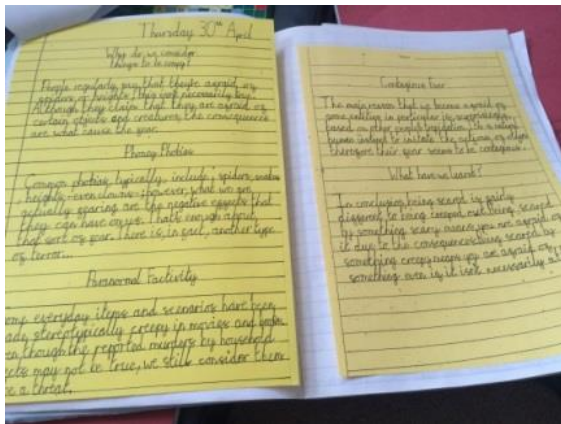 Thursday 30th April
Why do we consider
things to be creepy?
People regularly say that they're afraid of
spiders or heights; this isn't necessarily true.
Although they claim that they are afraid of
certain objects and creatures, the consequences
are what cause the fear.
Phoney Phobias
Common phobias typically include; spiders, snakes
heights-even clowns-; however, what we are
actually fearing are the negative effects that
they can have on us. That's enough about
that sort of fear. There is, in fact, another type
of terror...
Paranormal Factivity
everyday items and scenarios have been
stereotypically creepy in movies and
though the reported murders by household
may not be true, we still consider them
a threat.
Contagious Fear
The major reason that we become afraid of
something in particular is
based on other people's It's a natural
human instinct to imitate the actions of others
therefore their fear seems to be contagious.
What have we learnt?
In conclusion, being scared is fairly
different to being creeped out. being scared
by something scary means you are afraid of
it due to the consequences; being scared by
something creepy means you are afraid of
something even if it isn't necessarily